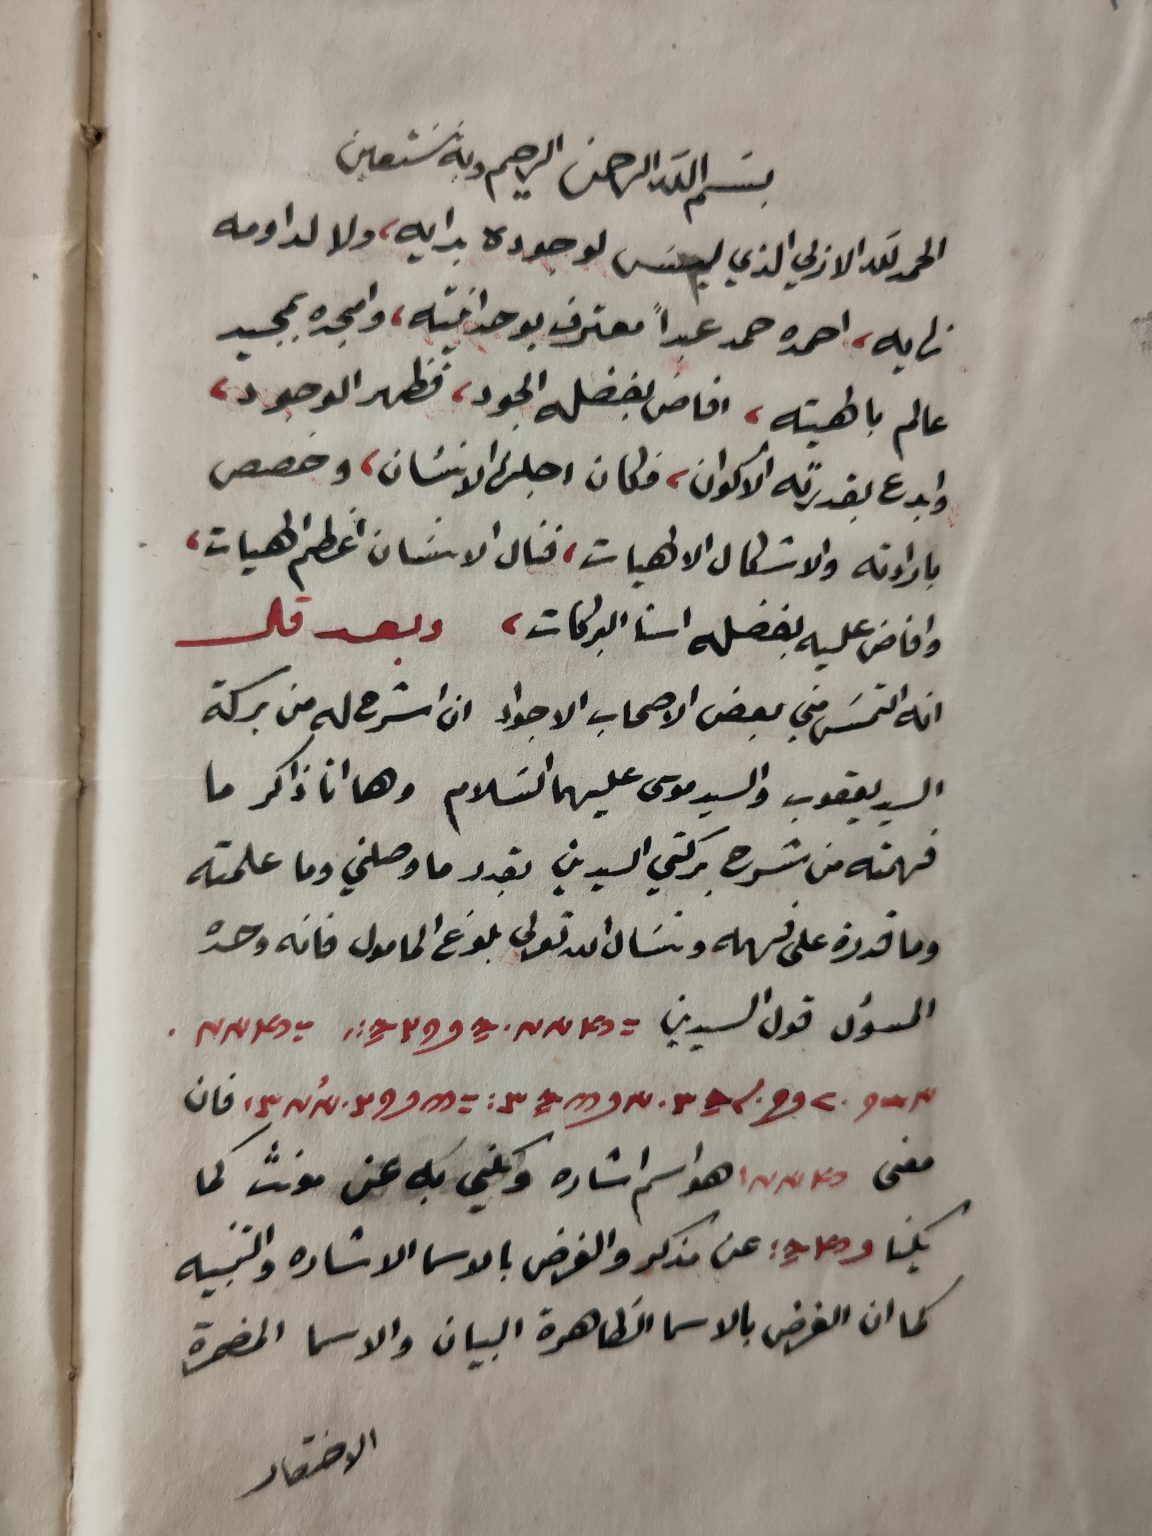 بسم الله الرحمن الرحيم وبه نستعين
الحمد لله الازلي الذي ليس لوجوده بدايه، ولا لداومه
نهايه، احمده حمد عبداً معترف بوحدانيته، وامجده تمجيد
عالم بالهيته، افاض بفضله الجود، فظهر الوجود،
وابدع بقدرته الأكوان، فكان اجلها الانسان، وخصص
بارادته والاشكال الالهيات، فنال الانسان اعظم الهيات،
وافاض عليه بفضله اسنا البركات، وبعد قلـ
انه التمس مني بعض الاصحاب الاجواد ان اشرح له من بركة
السيد يعقوب والسيد موسى عليهما السلام وها انا ذاكر ما
فهمته من شرح بركتي السيدين بقدر ما وصلني وما علمته
وما قدرة على فهمه ونسال الله تعالى بلوغ المامول فانه وحده
المسؤل قول السيدين
فان
معنى هو اسم اشاره وكني به عن مونث كما
يكنا عن مذكر والغرض بالاسما الاشاره والتنبيه
كما ان الغرض بالاسما الظاهرة البيان والاسما المضمرة
الاختصار